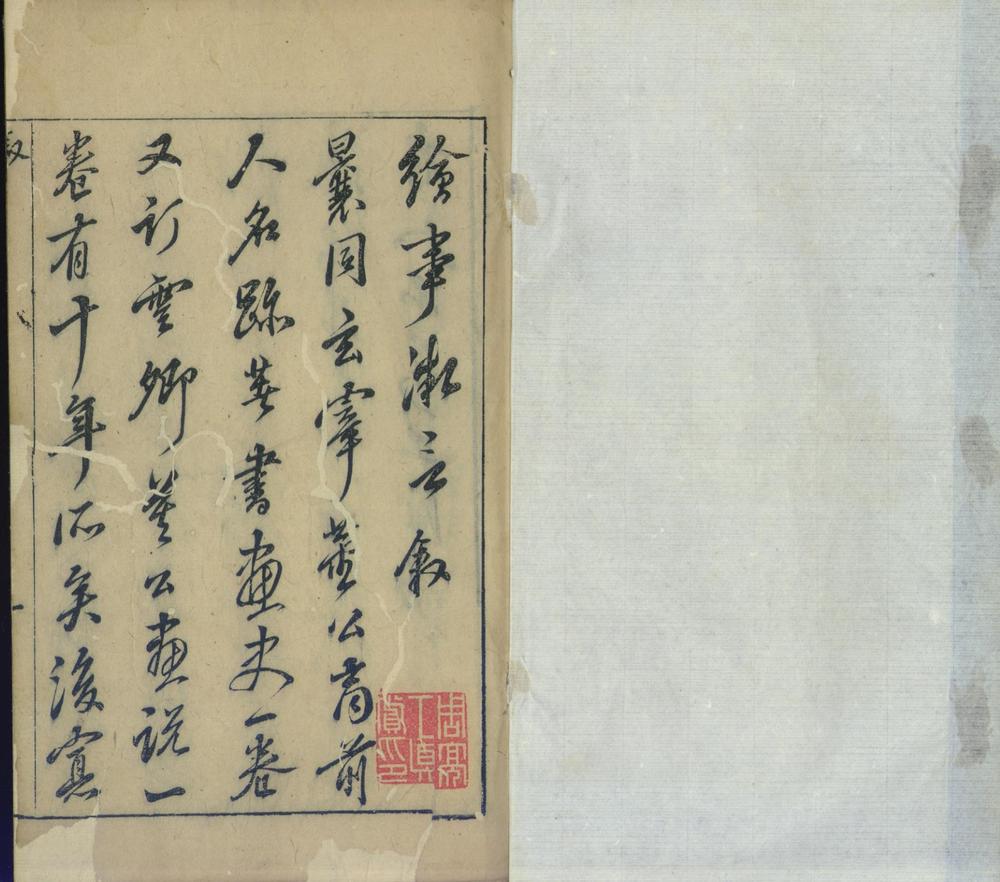 繪事微言叙
曩同玄宰董公商前
人名跡書畫史一卷
又訂雲卿莫公畫說一
卷有十年所矣後